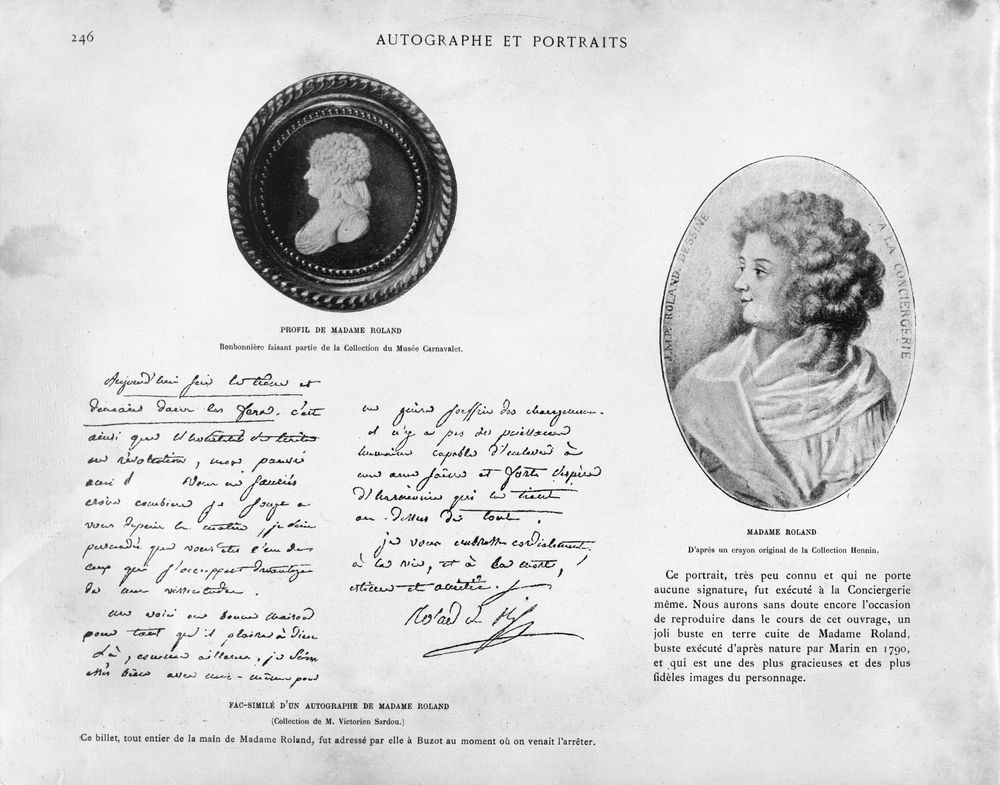 246
AUTOGRAPHE ET PORTRAITS
PROFIL DE MADAME ROLAND
Bonbonnière faisant partie de la Collection du Musée Carnavalet.
Aujourd'hui sur le trône et
demain dans les fers. c'est
ainsi que l'honnêteté
en révolution, mon pauvre
ami ! Vous ne sauriez
croire combien je songe a
vous depuis le matin, je suis
persuadée que vous êtes l'un des
ceux qui s'occupent davantage
de mes vicissitudes.
me voici en bonne maison
pour tant qu'il plaira à dieu
Là, comme ailleurs, je serai
assés bien avec moi-même pour
ne guère souffrir des changemens.
il n'y a pas de puissance
humaine capable d'enlever à
une ame saine et forte l'espèce
d'harmonie qui la tient
au-dessus de tout.
je vous embrasse cordialement,
à la vie, et à la mort,
estime et amitié.
Roland
FAC-SIMILÉ D'UN AUTOGRAPHE DE MADAME ROLAND
(Collection de M. Victorien Sardou.)
Ce billet, tout entier de la main de Madame Roland, fut adressé par elle à Buzot au moment où on venait l'arrêter.
J.M.P. ROLAND. DESSINÉ A LA CONCIERGERIE
MADAME ROLAND
D'après un crayon original de la Collection Hennin.
Ce portrait, très peu connu et qui ne porte
aucune signature, fut exécuté à la Conciergerie
même. Nous aurons sans doute encore l'occasion
de reproduire dans le cours de cet ouvrage, un
joli buste en terre cuite de Madame Roland,
buste exécuté d'après nature par Marin en 1790,
et qui est une des plus gracieuses et des plus
fidèles images du personnage.